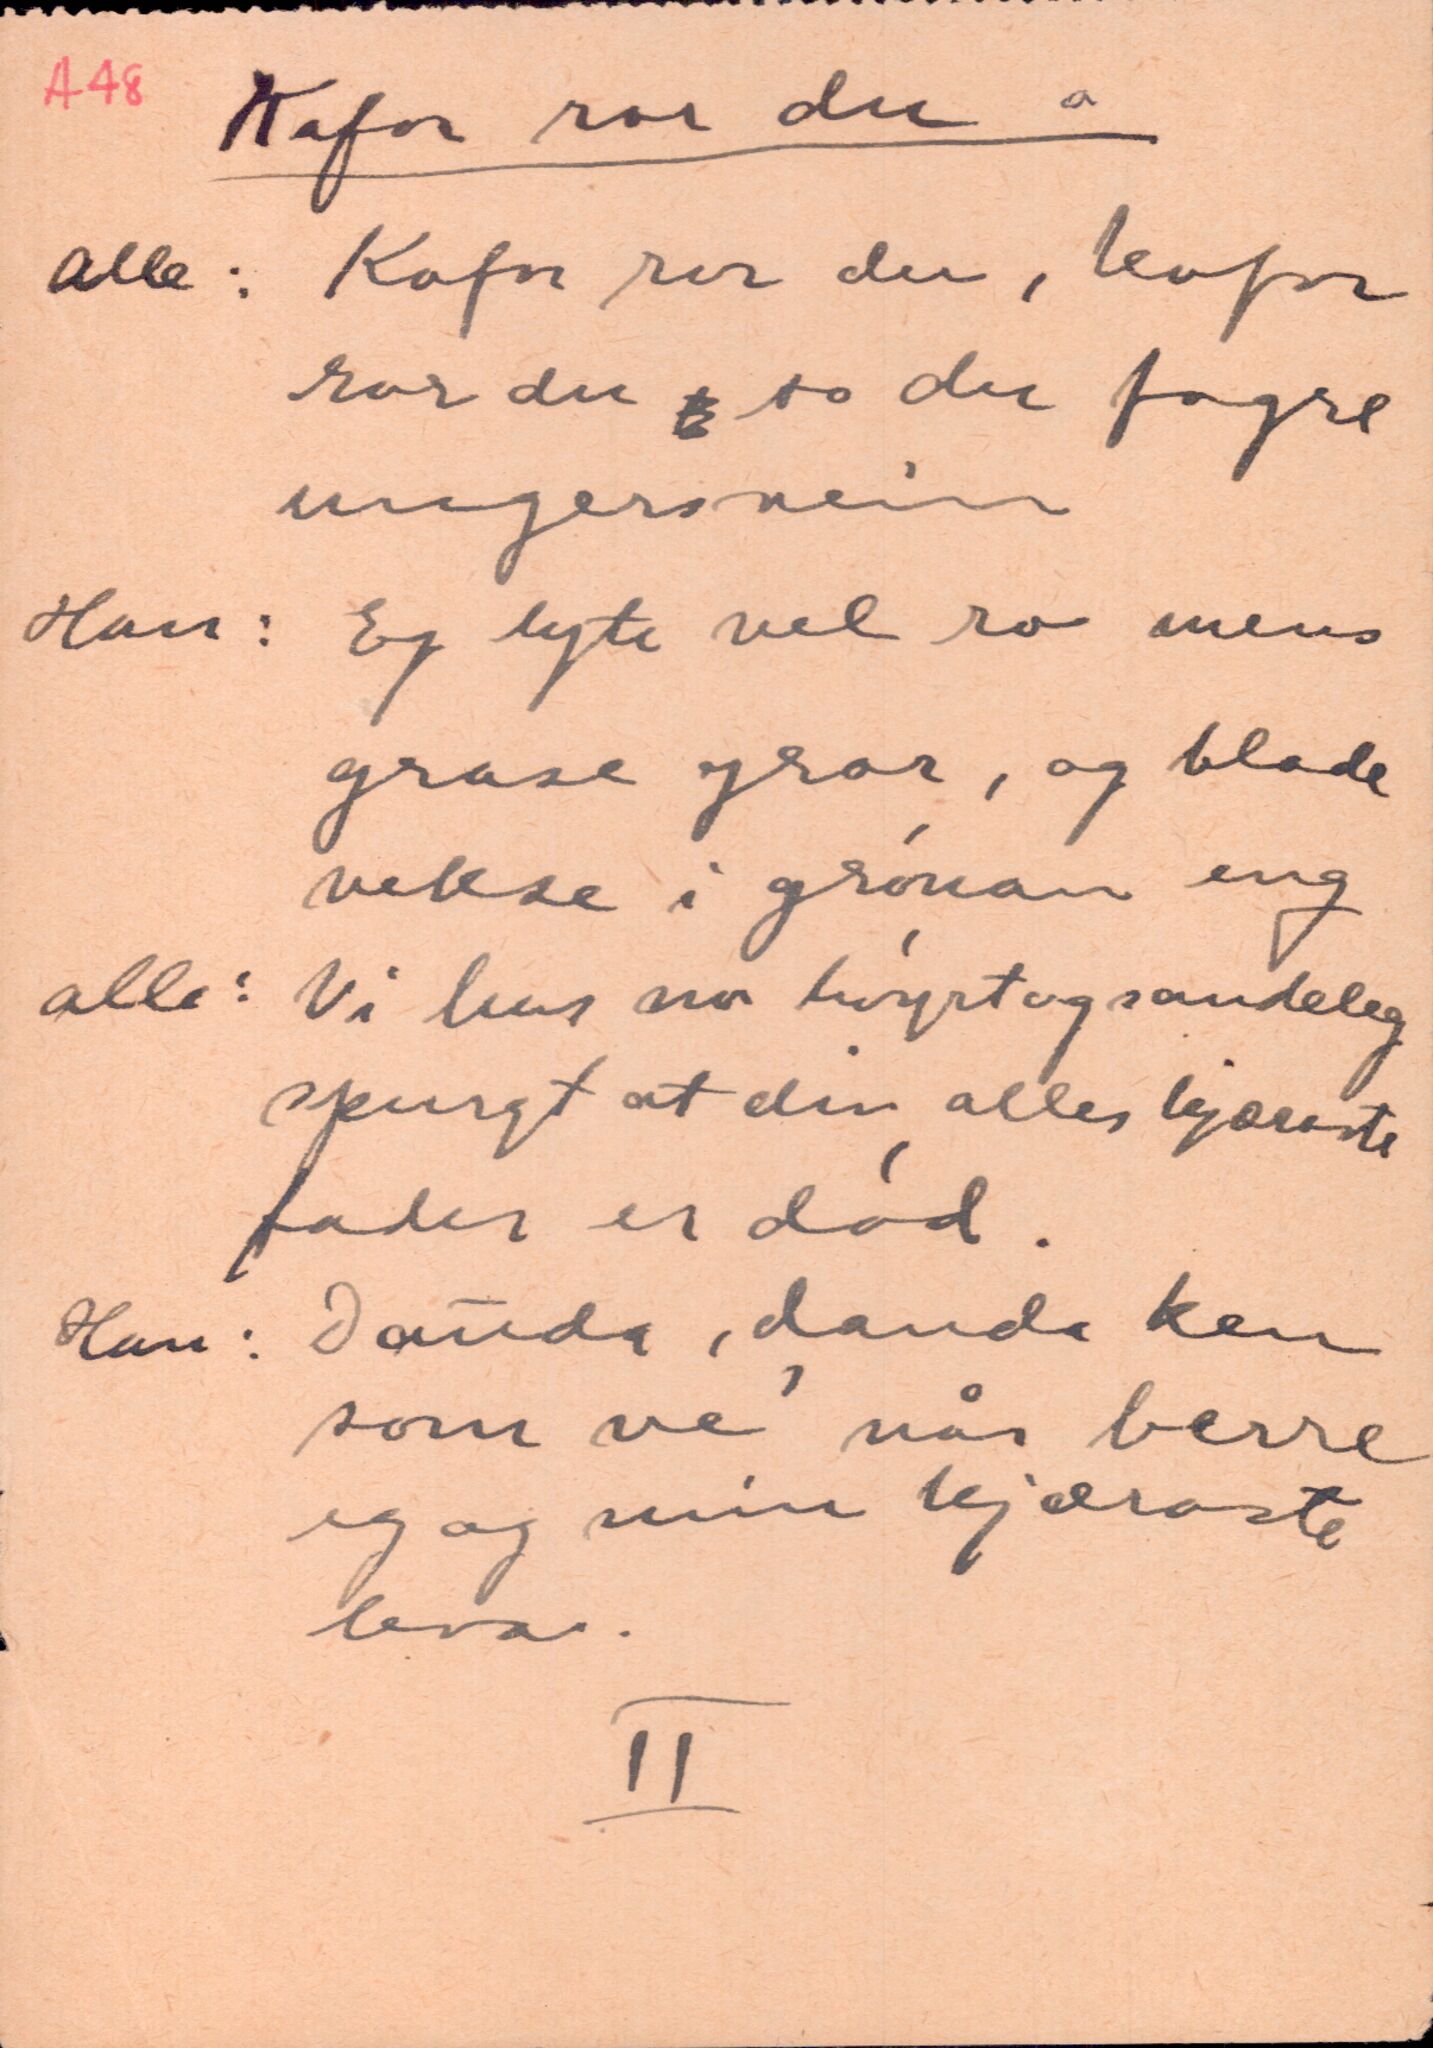 A48
Kafor ror du
Alle: Kafor ror du, kafor
ror du so du fagre
ungersvein
Han: Eg lyte vel ro mens
grase gror, og blade
vekse i grónan eng
alle: Vi har no høyrt og sandeleg
spurgt at din alles kjæraste
fader er dód.
Han: Dauda, dauda ken
som ve når berre
eg og min kjæraste
leva.
II